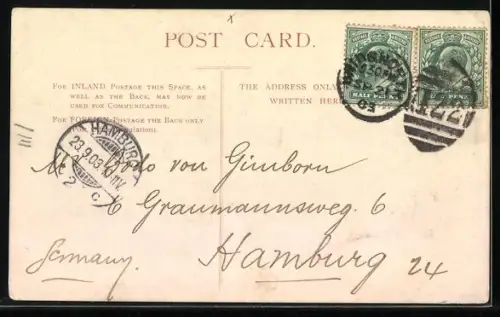 x
POST CARD.
FOR INLAND POSTAGE THIS SPACE, AS
WELL AS THE BACK, MAY NOW BE
USED FOR COMMUNICATION.
FOR FOREIGN POSTAGE THE BACK ONLY
THE ADDRESS ONLY
WRITTEN HERE
HALF PENNY
03
HAMBURG
23.9.03
2 c
von Gimborn
6 Graumannsweg. 6
Hamburg 24
Germany.